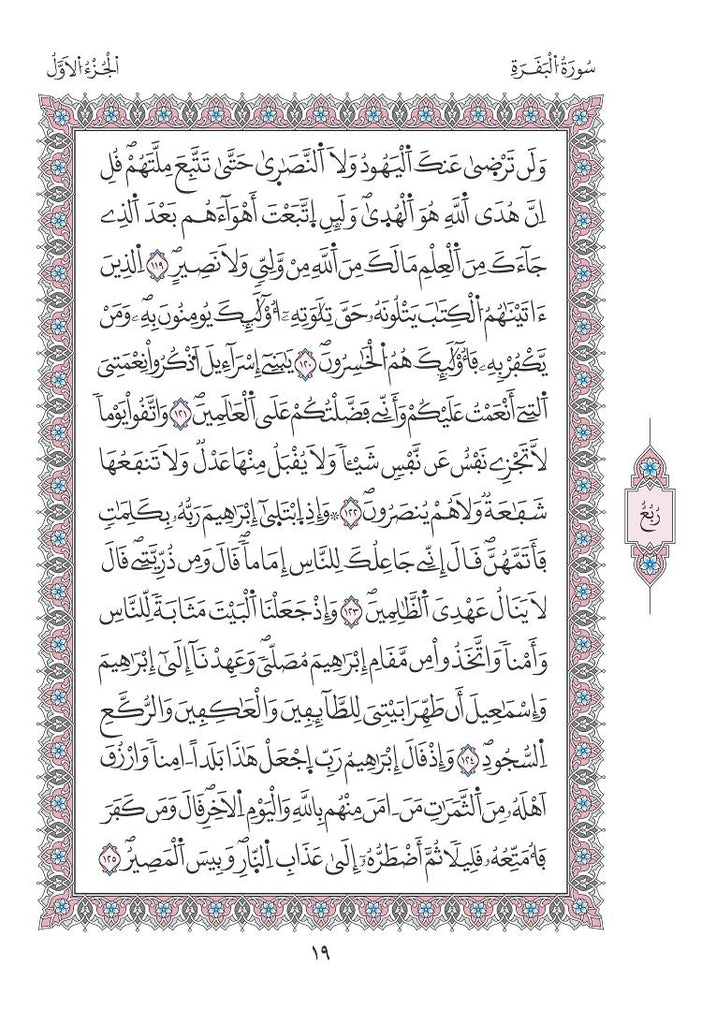 سُورَةُ الْبَقَرَةِ
الْجُزْءُ الْأَوَّلُ
وَلَن تَرْضىٰ عَنكَ اَ۬لْيَهُودُ وَلَا اَ۬لنَّصَٰرىٰ حَتَّىٰ تَتَّبِعَ مِلَّتَهُمْۖ قُلِ
اِنَّ هُدَى اَ۬للَّهِ هُوَ اَ۬لْهُدىٰۖ وَلَئِنِ اِ۪تَّبَعْتَ أَهْوَآءَهُم بَعْدَ اَ۬لذِے
جَآءَكَ مِنَ اَ۬لْعِلْمِ مَا لَكَ مِنَ اَ۬للَّهِ مِنْ وَّلِيّٖ وَلَا نَصِيرٍۖ ١١٩ اِ۬لذِينَ
ءَاتَيْنَٰهُمُ اُ۬لْكِتَٰبَ يَتْلُونَهُۥ حَقَّ تِلَاوَتِهِۦٓ أُوْلَٰٓئِكَ يُومِنُونَ بِهِۦۖ وَمَنْ
يَّكْفُرْ بِهِۦ فَأُوْلَٰٓئِكَ هُمُ اُ۬لْخَٰسِرُونَۖ ١٢٠ يَٰبَنِےٓ إِسْرَآءِيلَ اَ۟ذْكُرُواْ نِعْمَتِيَ
اَ۬لتِےٓ أَنْعَمْتُ عَلَيْكُمْ وَأَنِّے فَضَّلْتُكُمْ عَلَى اَ۬لْعَٰلَمِينَۖ ١٢١ وَاتَّقُواْ يَوْماٗ
لَّا تَجْزِے نَفْسٌ عَن نَّفْسٖ شَيْـٔاٗ وَلَا يُقْبَلُ مِنْهَا عَدْلٞ وَلَا تَنفَعُهَا
شَفَٰعَةٞ وَلَا هُمْ يُنصَرُونَۖ ١٢٢ ۞وَإِذِ اِ۪بْتَلىٰٓ إِبْرَٰهِيمَ رَبُّهُۥ بِكَلِمَٰتٖ
فَأَتَمَّهُنَّۖ قَالَ إِنِّے جَاعِلُكَ لِلنَّاسِ إِمَاماٗۖ قَالَ وَمِن ذُرِّيَّتِےۖ قَالَ
لَا يَنَالُ عَهْدِيَ اَ۬لظَّٰلِمِينَۖ ١٢٣ وَإِذْ جَعَلْنَا اَ۬لْبَيْتَ مَثَابَةٗ لِّلنَّاسِ
وَأَمْناٗ وَاتَّخَذُواْ مِن مَّقَامِ إِبْرَٰهِيمَ مُصَلّيٗۖ وَعَهِدْنَآ إِلَىٰٓ إِبْرَٰهِيمَ
وَإِسْمَٰعِيلَ أَن طَهِّرَا بَيْتِيَ لِلطَّآئِفِينَ وَالْعَٰكِفِينَ وَالرُّكَّعِ
اِ۬لسُّجُودِۖ ١٢٤ وَإِذْ قَالَ إِبْرَٰهِيمُ رَبِّ اِ۪جْعَلْ هَٰذَا بَلَداً اٰمِناٗ وَارْزُقَ
اَهْلَهُۥ مِنَ اَ۬لثَّمَرَٰتِ مَنَ اٰمَنَ مِنْهُم بِاللَّهِ وَالْيَوْمِ اِ۬لَاخِرِۖ قَالَ وَمَن كَفَرَ
فَأُمَتِّعُهُۥ قَلِيلاٗ ثُمَّ أَضْطَرُّهُۥٓ إِلَىٰ عَذَابِ اِ۬لنّ۪ارِۖ وَبِيسَ اَ۬لْمَصِيرُۖ ١٢٥
رُبُعٌ
١٩